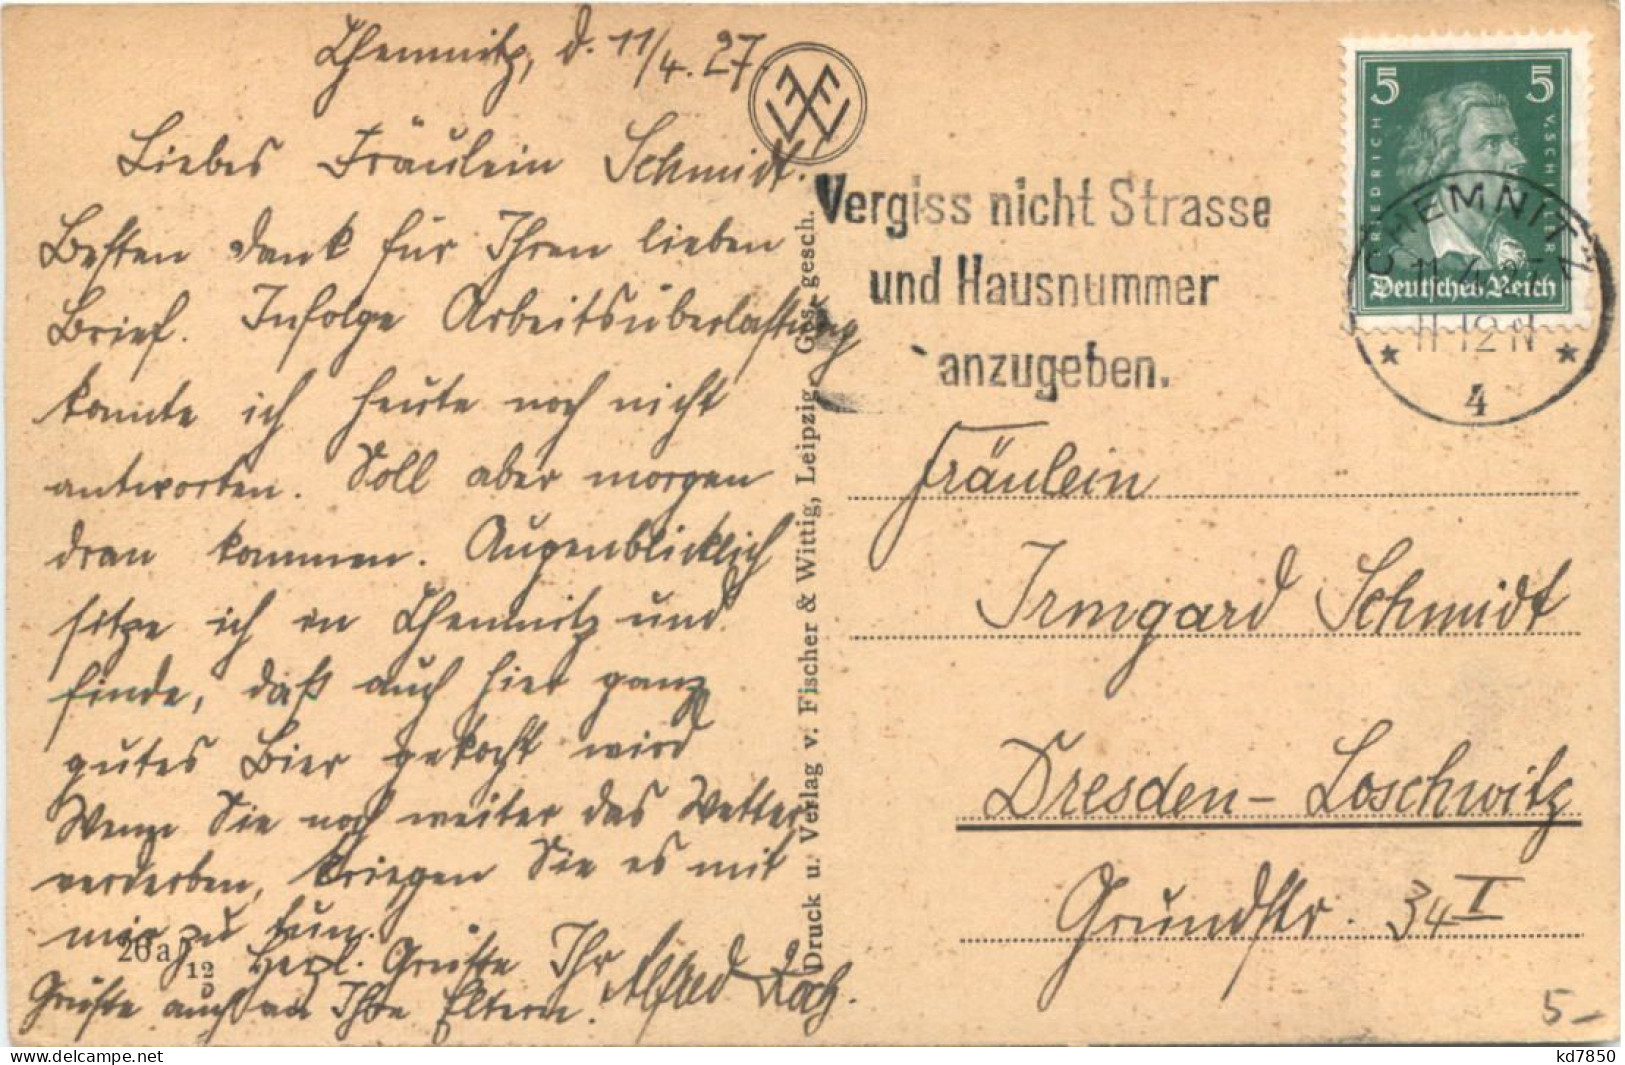 Chemnitz, d. 11/4. 27.
Liebes Fräulein Schmidt!
Besten Dank für Ihren lieben
Brief. Infolge Arbeitsüberlastung
konnte ich heute noch nicht
antworten. Soll aber morgen
dran kommen. Augenblicklich
sitze ich in Chemnitz und
finde, daß auch hier ganz
gutes Bier gekocht wird
Wenn Sie noch weiter das Wetter
verderben, kriegen Sie es mit
mir zu tun.
Herzl. Grüße Ihr Alfred
Grüße auch an Ihre Eltern.
26 a 12
Druck u. Verlag v. Fischer & Wittig, Leipzig. Ges. gesch.
Vergiss nicht Strasse
und Hausnummer
anzugeben.
5 5
FRIEDRICH V. SCHILLER
Deutsches Reich
CHEMNITZ
11.4.27
11-12 N
* 4 *
Fräulein
Irmgard Schmidt
Dresden-Loschwitz
Grundstr. 34 I
5-
kd7850